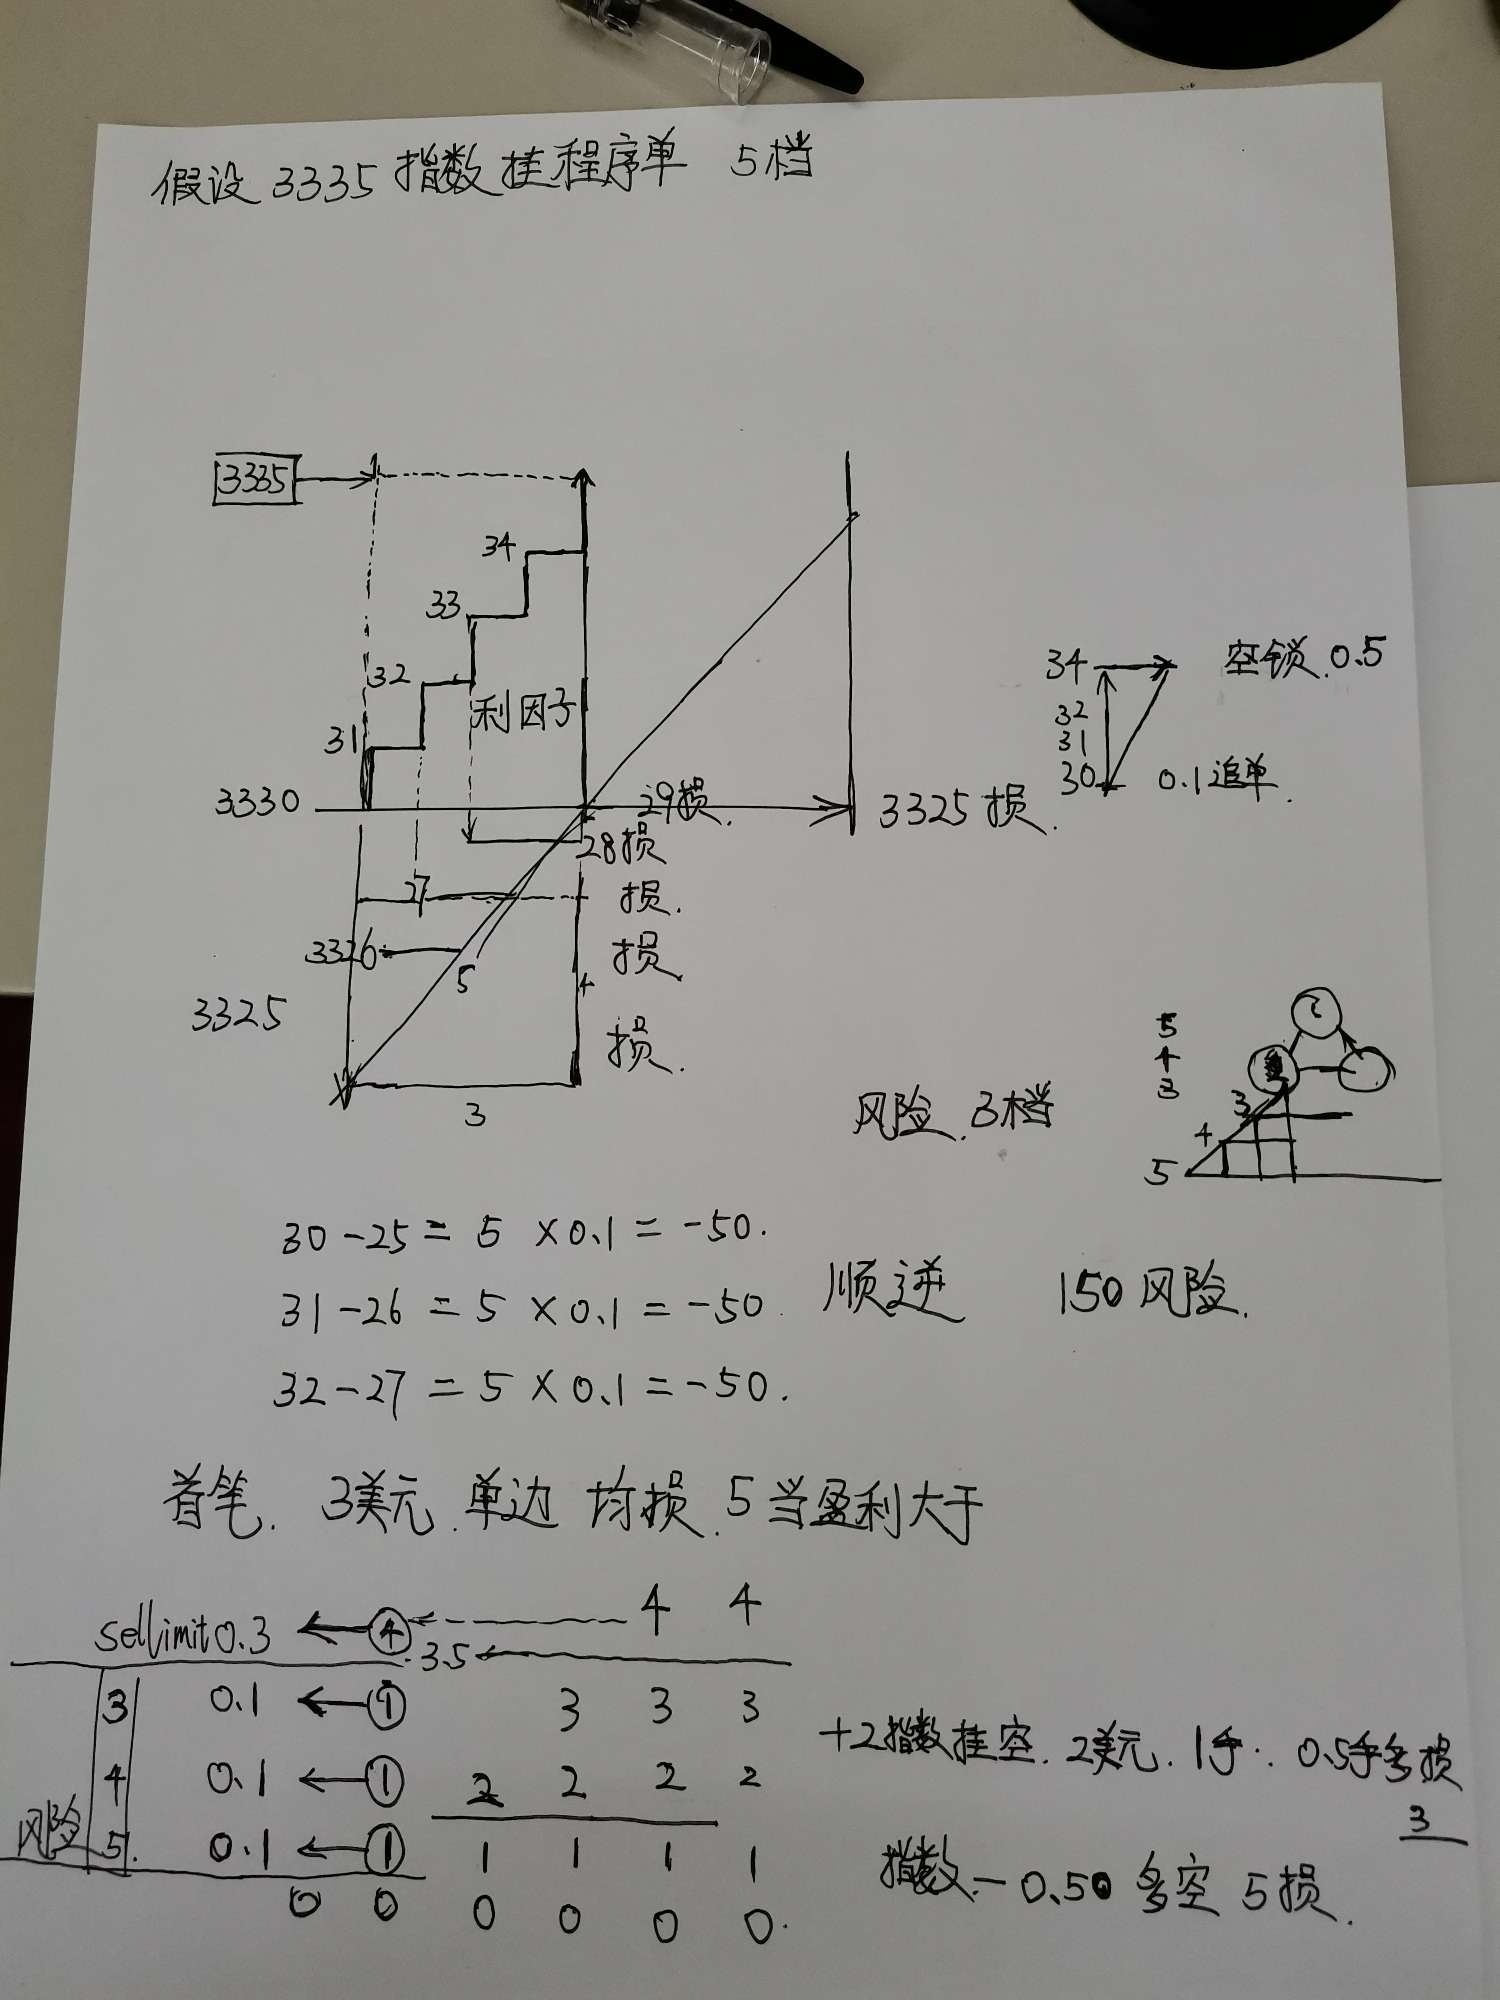 假设 3335 指数挂程序单 5档
3335
34
33
32
利因子
31
3330
29损.
3325 损.
28损
27
损.
3326
损
5
4
3325
损.
3
34 空锁.0.5
32
31
30 0.1追单.
风险.3档
5
4
3
3
4
5
30-25=5×0.1=-50.
31-26=5×0.1=-50.
顺逆 150风险.
32-27=5×0.1=-50.
首笔. 3美元.单边 均损.5当盈利大于
4 4
sellimit0.3 ④
3.5
3 0.1 ① 3 3 3
+2指数挂空.2美元.1手. 0.5手多损
3
4 0.1 ① 2 2 2 2
风险 5. 0.1 ① 1 1 1 1
指数-0.50 多空 5损.
0 0 0 0 0 0.